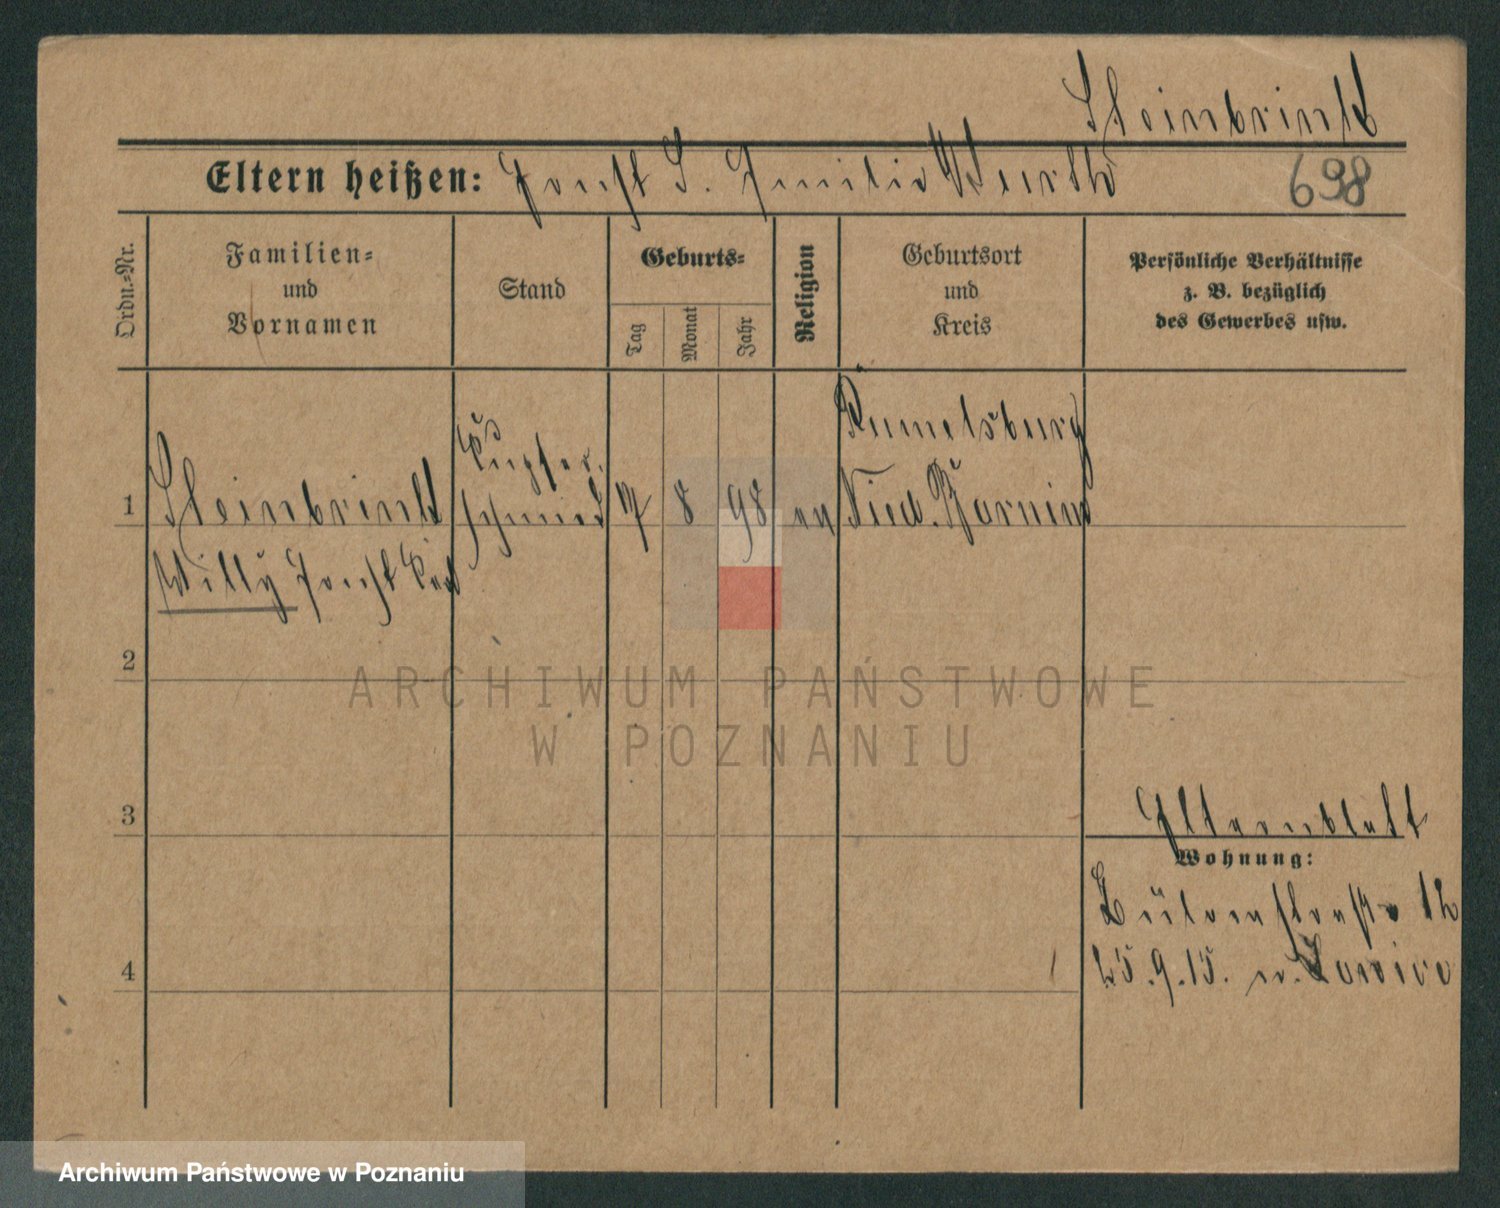 Steinbrink
Eltern heißen: Ernst S. Emilie Wurth
698
Ordn.=Nr.
Familien=
und
Vornamen
Stand
Geburts=
Tag
Monat
Jahr
Religion
Geburtsort
und
Kreis
Persönliche Verhältnisse
z. B. bezüglich
des Gewerbes usw.
1
Steinbrink
Willy Ernst
Kupfer
schmied
17
8
98
ev
Rumelsburg
Nied. Barnim
2
3
4
Elternblatt
Wohnung:
Bülowstraße 12
25.9.15. n.
ARCHIWUM PAŃSTWOWE
W POZNANIU
Archiwum Państwowe w Poznaniu